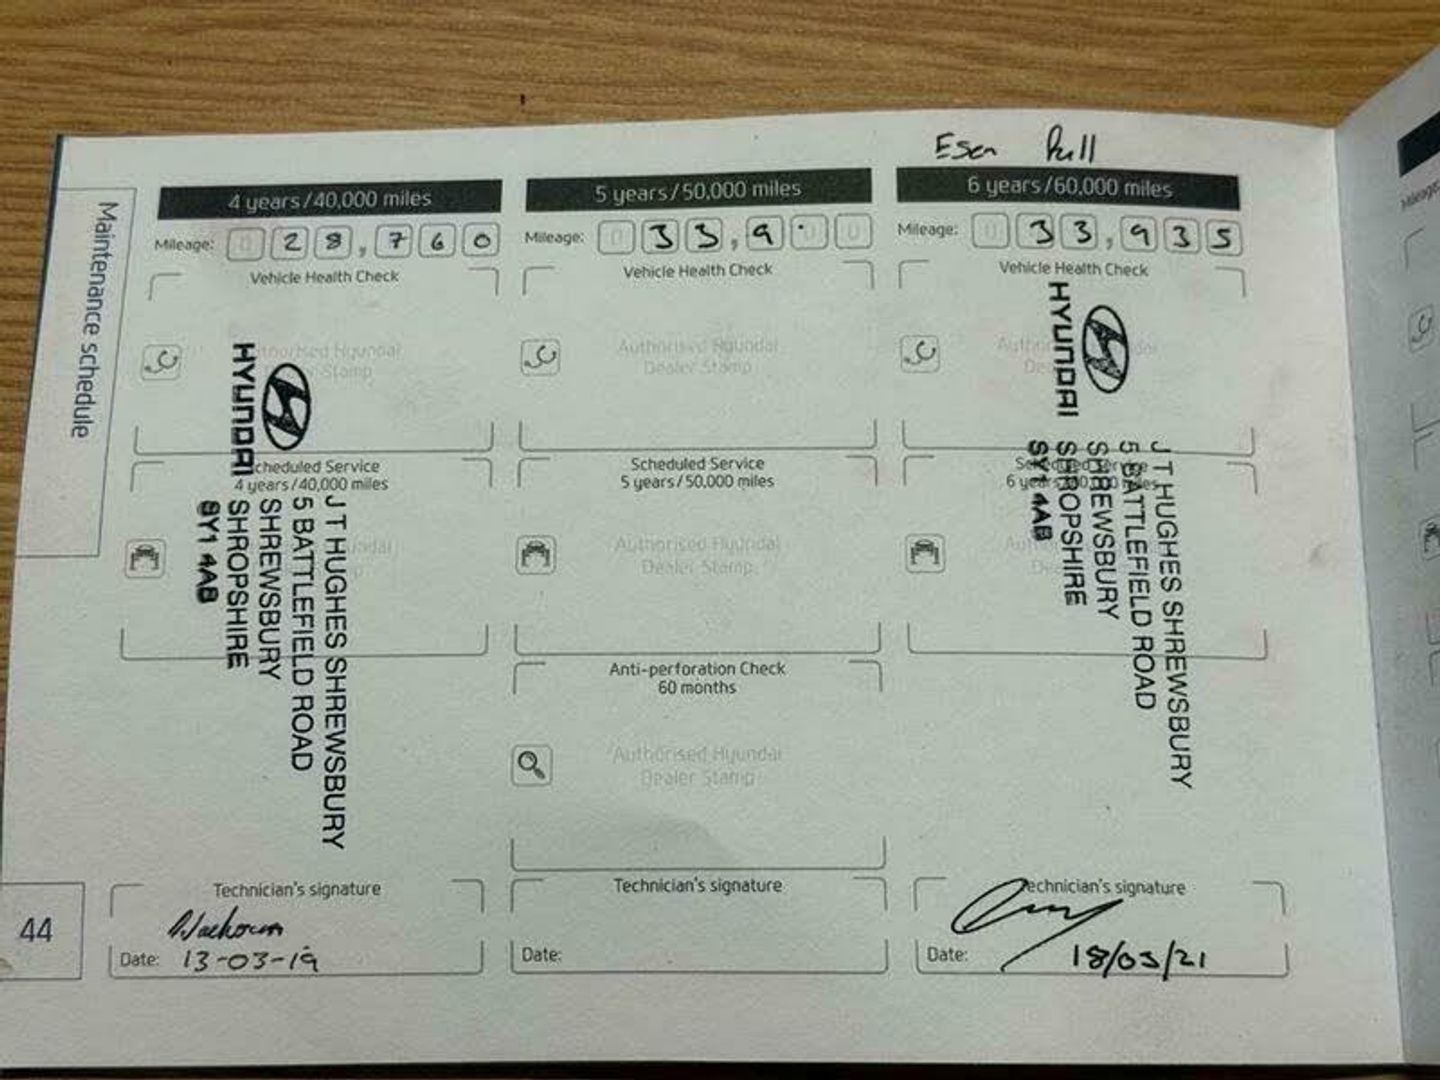 Maintenance schedule
44
4 years/40,000 miles
Mileage: 0 28,760
Vehicle Health Check
HYUNDAI
Scheduled Service
4 years/40,000 miles
J T HUGHES SHREWSBURY
5 BATTLEFIELD ROAD
SHREWSBURY
SHROPSHIRE
SY1 4AB
Technician's signature
Date: 13-03-19
5 years/50,000 miles
Mileage: 0 33,9 0 0
Vehicle Health Check
Authorised Hyundai
Dealer Stamp
Scheduled Service
5 years/50,000 miles
Authorised Hyundai
Dealer Stamp
Anti-perforation Check
60 months
Authorised Hyundai
Dealer Stamp
Technician's signature
Date:
6 years/60,000 miles
Mileage: 0 33,935
Vehicle Health Check
HYUNDAI
Scheduled Service
6 years/60,000 miles
J T HUGHES SHREWSBURY
5 BATTLEFIELD ROAD
SHREWSBURY
SHROPSHIRE
SY1 4AB
Technician's signature
Date: 18/03/21
Mileage: